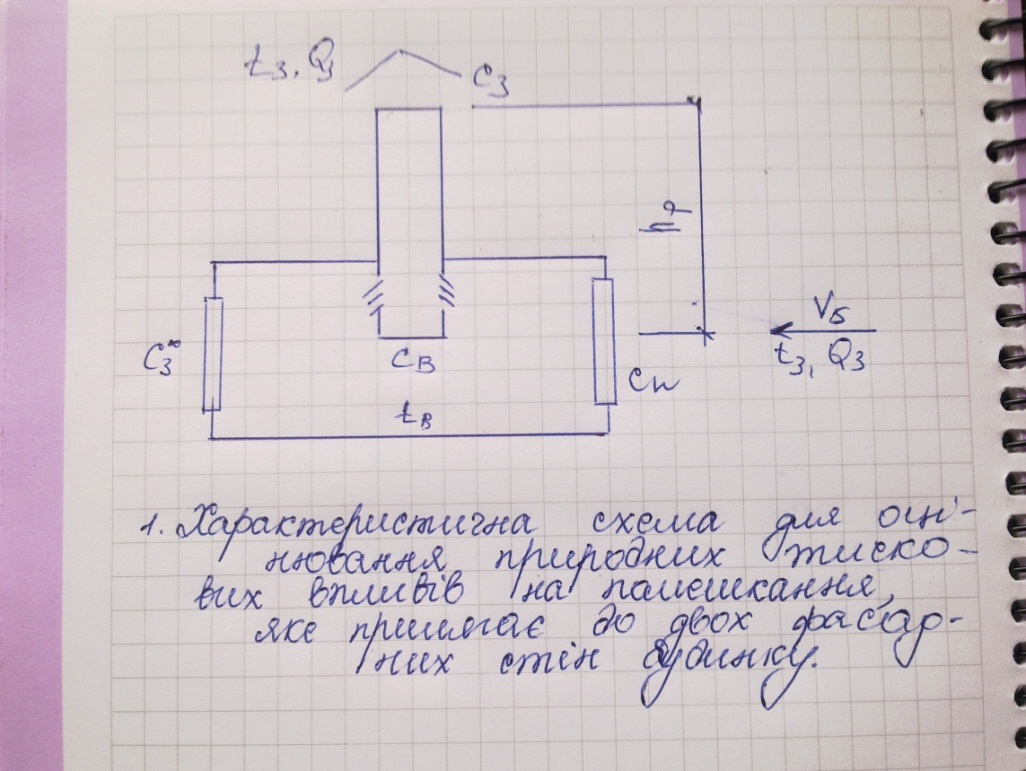 t₃, Q₃
C₃
h
V₅
t₃, Q₃
C₃*
C_B
C_н
t_B
1. Характеристична схема для оці-
нювання природних тиско-
вих впливів на помешкання,
яке прилягає до двох фасад-
них стін будинку.